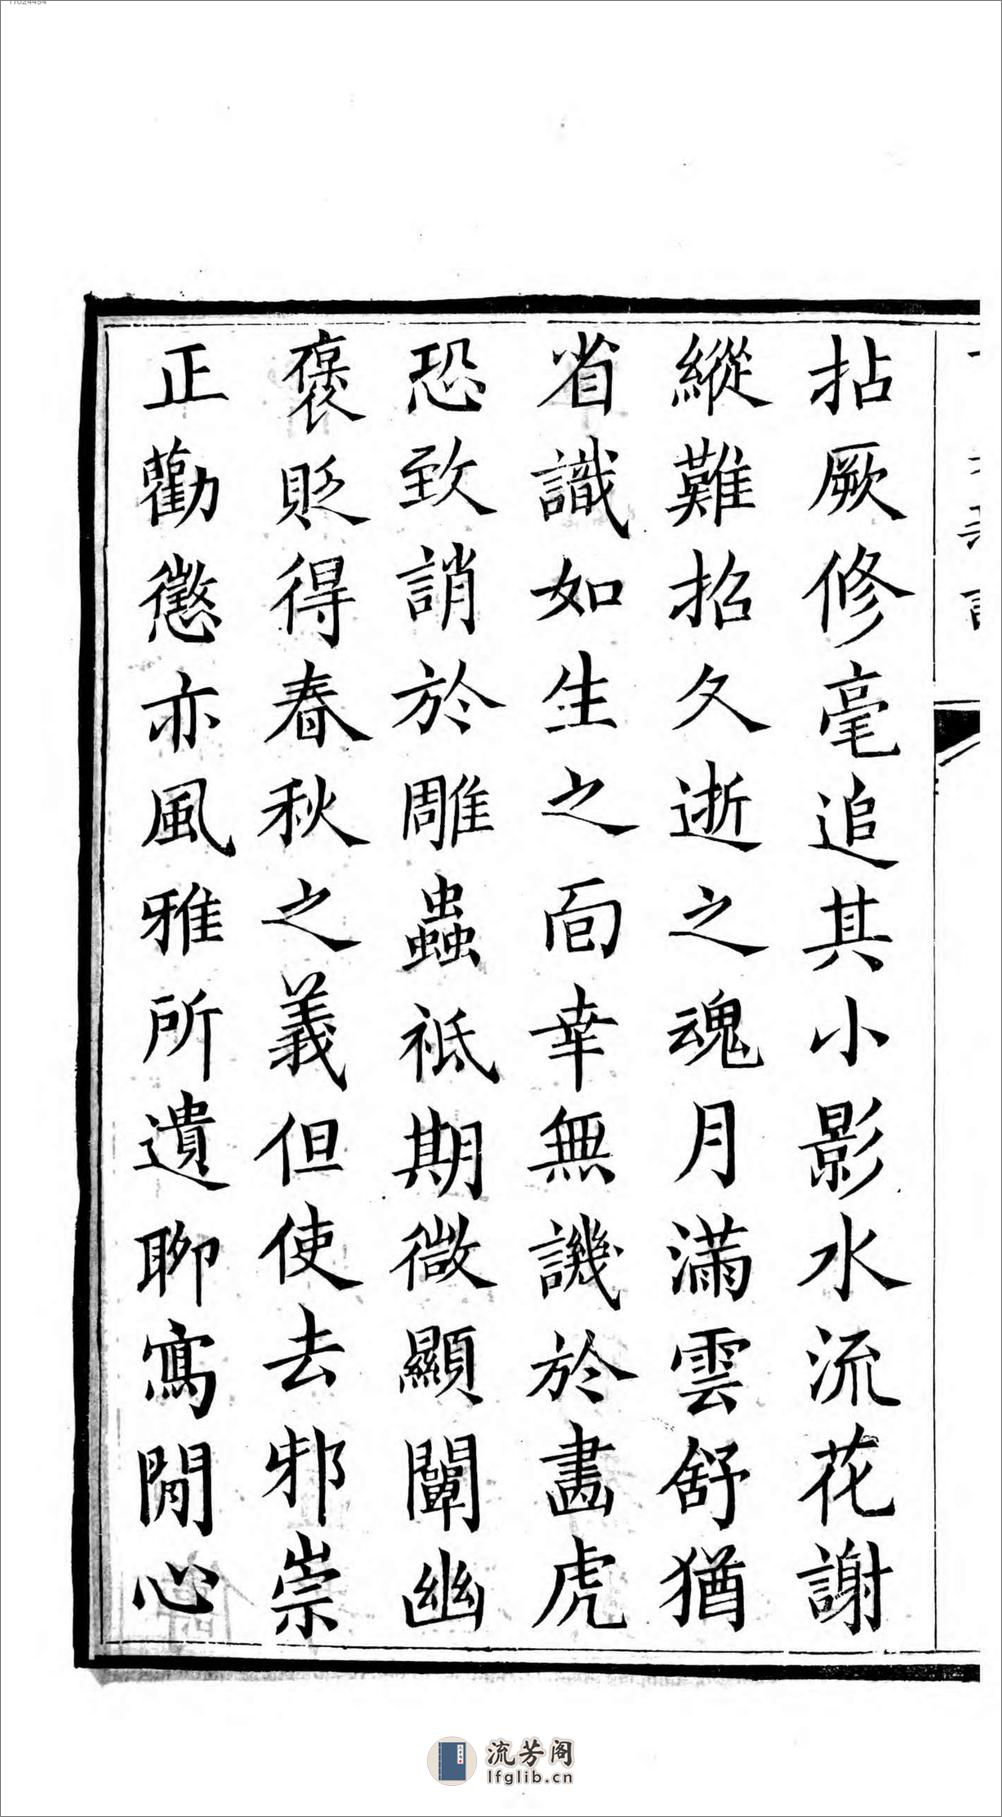 拈厥修毫追其小影水流花謝
縱難招久逝之魂月滿雲舒猶
省識如生之面幸無譏於畫虎
恐致誚於雕蟲祇期微顯闡幽
褒貶得春秋之義但使去邪崇
正勸懲亦風雅所遺聊寫閒心
流芳阁
lfglib.cn